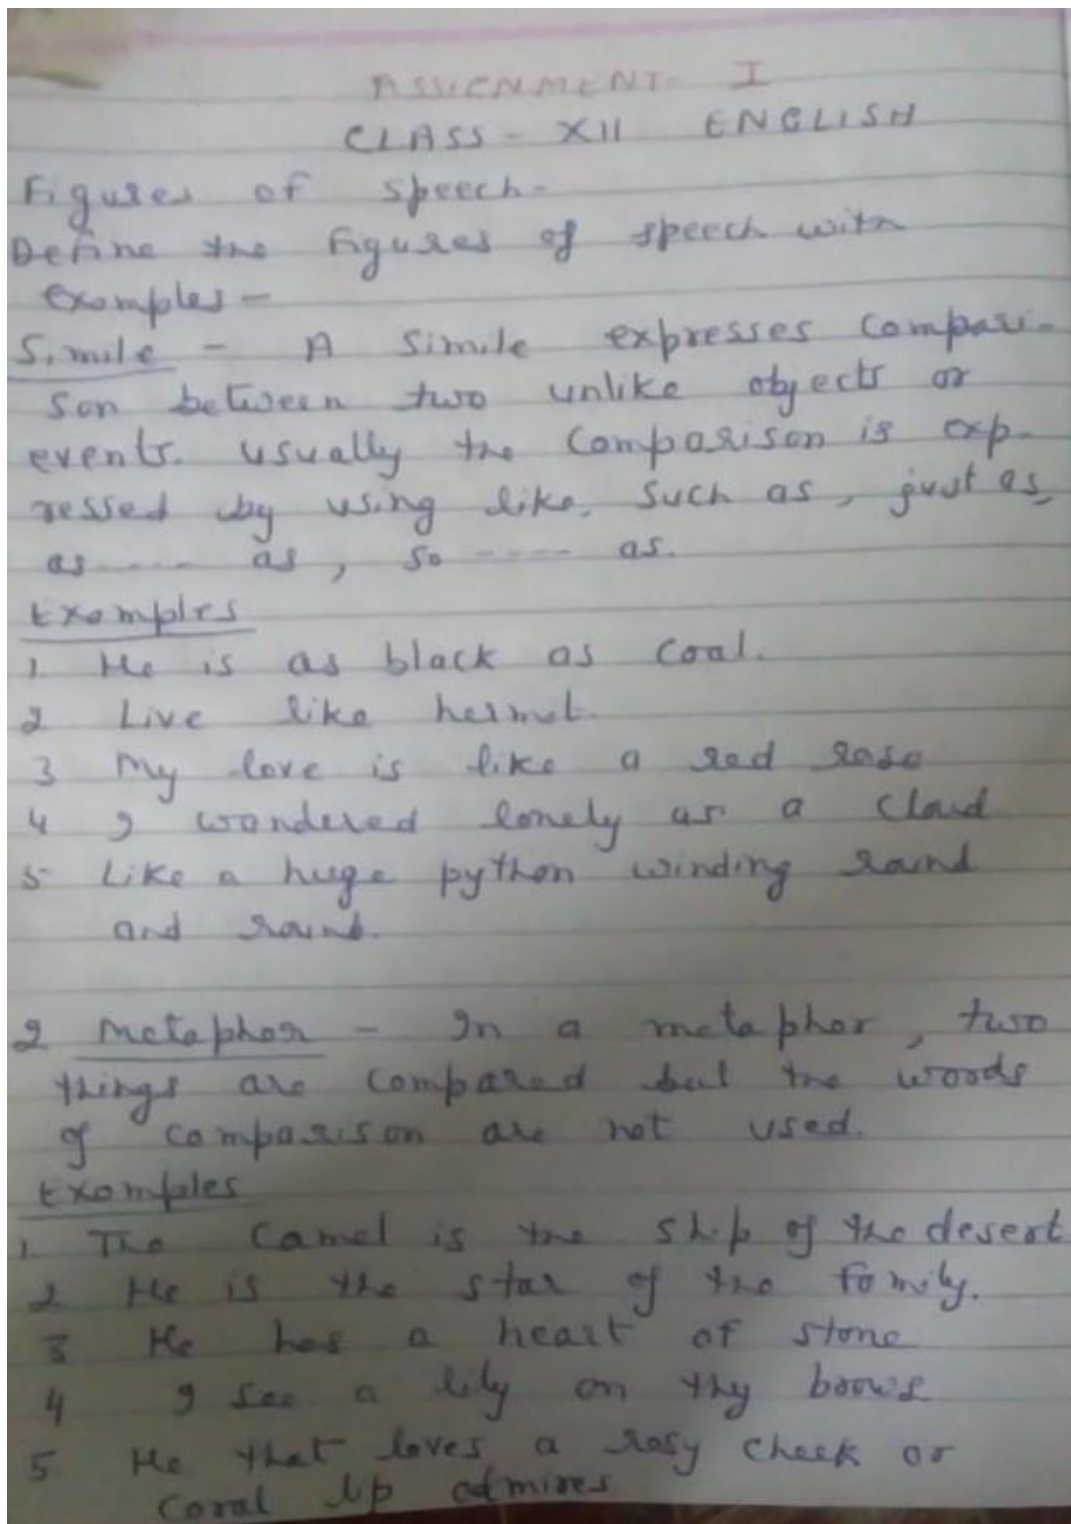 ASSIGNMENT - I
CLASS - XII ENGLISH
Figures of speech -
Define the figures of speech with
examples -
Simile - A Simile expresses Compari-
son between two unlike objects or
events. usually the Comparison is exp-
ressed by using like, Such as, just as,
as ---- as, so ---- as.
Examples
1. He is as black as Coal.
2 Live like hermit.
3 My love is like a red rose
4 I wondered lonely as a Cloud
5 Like a huge python winding round
and round.
2 Metaphor - In a metaphor, two
things are Compared but the words
of comparison are not used.
Examples
1. The Camel is the ship of the desert
2. He is the star of the family.
3 He has a heart of stone
4 I see a lily on thy brows
5 He that loves a rosy cheek or
Coral lip admires